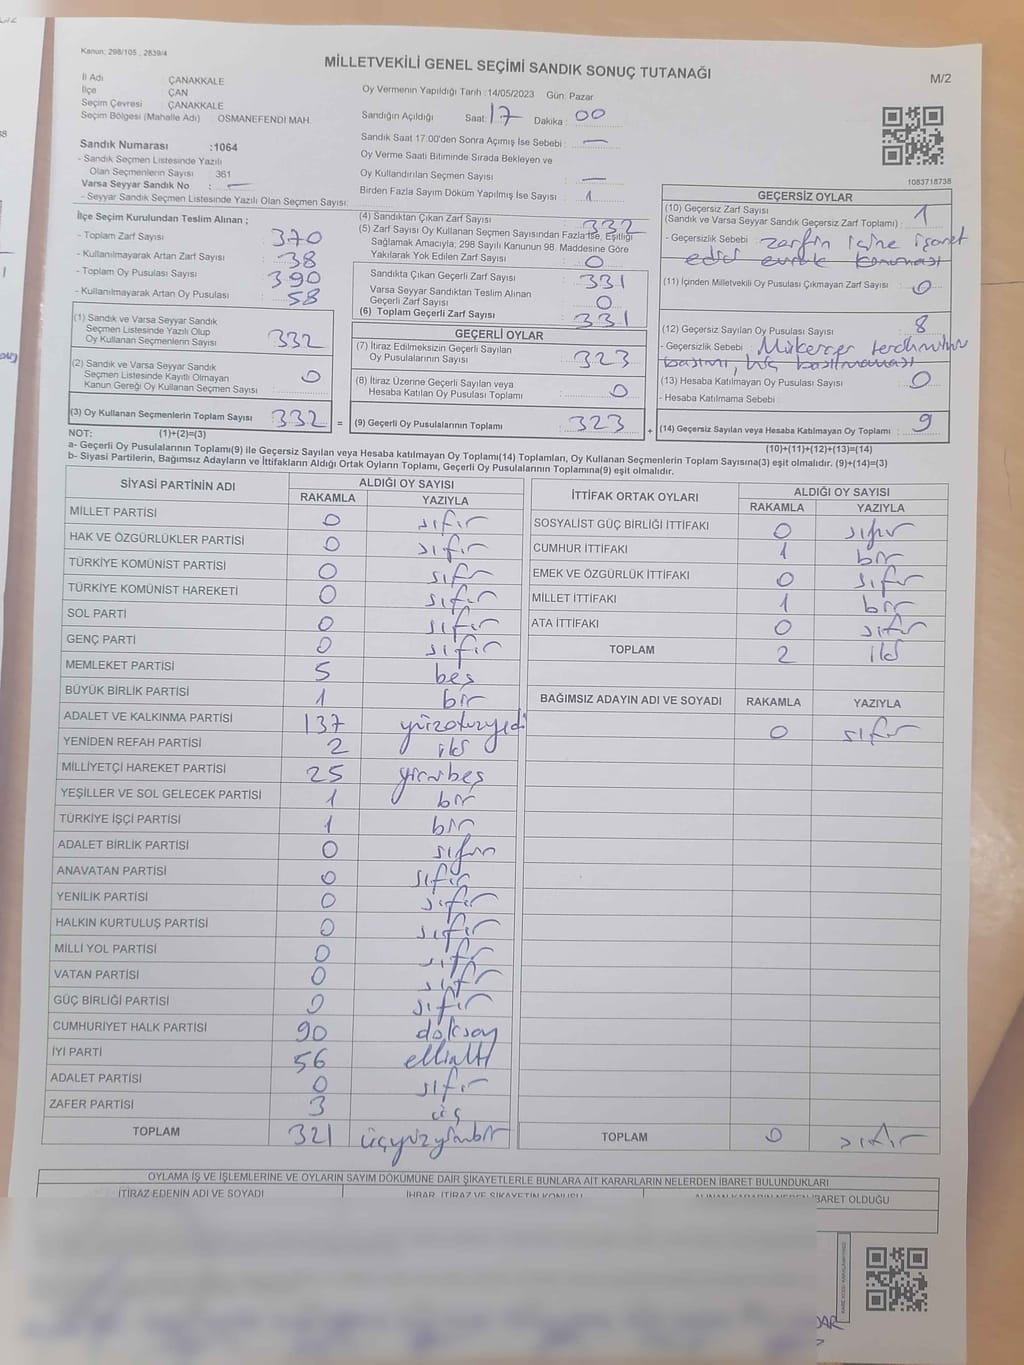 Kanun: 298/105 , 2839/4
MİLLETVEKİLİ GENEL SEÇİMİ SANDIK SONUÇ TUTANAĞI
M/2
İl Adı : ÇANAKKALE
İlçe : ÇAN
Seçim Çevresi : ÇANAKKALE
Seçim Bölgesi (Mahalle Adı) : OSMANEFENDİ MAH.
Sandık Numarası :1064
- Sandık Seçmen Listesinde Yazılı
Olan Seçmenlerin Sayısı : 361
Varsa Seyyar Sandık No : —
- Seyyar Sandık Seçmen Listesinde Yazılı Olan Seçmen Sayısı:
Oy Vermenin Yapıldığı Tarih :14/05/2023 Gün: Pazar
Sandığın Açıldığı Saat: 17 Dakika : 00
Sandık Saat 17:00'den Sonra Açımış İse Sebebi : —
Oy Verme Saati Bitiminde Sırada Bekleyen ve
Oy Kullandırılan Seçmen Sayısı : —
Birden Fazla Sayım Döküm Yapılmış İse Sayısı : 1
1083718738
İlçe Seçim Kurulundan Teslim Alınan ;
- Toplam Zarf Sayısı : 370
- Kullanılmayarak Artan Zarf Sayısı : 38
- Toplam Oy Pusulası Sayısı : 390
- Kullanılmayarak Artan Oy Pusulası : 58
(1) Sandık ve Varsa Seyyar Sandık
Seçmen Listesinde Yazılı Olup
Oy Kullanan Seçmenlerin Sayısı : 332
(2) Sandık ve Varsa Seyyar Sandık
Seçmen Listesinde Kayıtlı Olmayan
Kanun Gereği Oy Kullanan Seçmen Sayısı : 0
(3) Oy Kullanan Seçmenlerin Toplam Sayısı : 332
(1)+(2)=(3)
(4) Sandıktan Çıkan Zarf Sayısı : 332
(5) Zarf Sayısı Oy Kullanan Seçmen Sayısından Fazla İse, Eşitliği
Sağlamak Amacıyla; 298 Sayılı Kanunun 98. Maddesine Göre
Yakılarak Yok Edilen Zarf Sayısı : 0
Sandıkta Çıkan Geçerli Zarf Sayısı : 331
Varsa Seyyar Sandıktan Teslim Alınan
Geçerli Zarf Sayısı : 0
(6) Toplam Geçerli Zarf Sayısı : 331
GEÇERLİ OYLAR
(7) İtiraz Edilmeksizin Geçerli Sayılan
Oy Pusulalarının Sayısı : 323
(8) İtiraz Üzerine Geçerli Sayılan veya
Hesaba Katılan Oy Pusulası Toplamı : 0
= (9) Geçerli Oy Pusulalarının Toplamı : 323
GEÇERSİZ OYLAR
(10) Geçersiz Zarf Sayısı : 1
(Sandık ve Varsa Seyyar Sandık Geçersiz Zarf Toplamı)
- Geçersizlik Sebebi : zarfın içine işaret
edici evrak konması
(11) İçinden Milletvekili Oy Pusulası Çıkmayan Zarf Sayısı : 0
(12) Geçersiz Sayılan Oy Pusulası Sayısı : 8
- Geçersizlik Sebebi : Mükerrer
basımı, hiç basılmaması
(13) Hesaba Katılmayan Oy Pusulası Sayısı : 0
- Hesaba Katılmama Sebebi :
+ (14) Geçersiz Sayılan veya Hesaba Katılmayan Oy Toplamı : 9
(10)+(11)+(12)+(13)=(14)
NOT:
a- Geçerli Oy Pusulalarının Toplam(9) ile Geçersiz Sayılan veya Hesaba katılmayan Oy Toplamı(14) Toplamları, Oy Kullanan Seçmenlerin Toplam Sayısına(3) eşit olmalıdır. (9)+(14)=(3)
b- Siyasi Partilerin, Bağımsız Adayların ve İttifakların Aldığı Ortak Oyların Toplamı, Geçerli Oy Pusulalarının Toplamına(9) eşit olmalıdır.
SİYASİ PARTİNİN ADI ALDIĞI OY SAYISI
RAKAMLA YAZIYLA
MİLLET PARTİSİ 0 sıfır
HAK VE ÖZGÜRLÜKLER PARTİSİ 0 sıfır
TÜRKİYE KOMÜNİST PARTİSİ 0 sıfır
TÜRKİYE KOMÜNİST HAREKETİ 0 sıfır
SOL PARTİ 0 sıfır
GENÇ PARTİ 0 sıfır
MEMLEKET PARTİSİ 5 beş
BÜYÜK BİRLİK PARTİSİ 1 bir
ADALET VE KALKINMA PARTİSİ 137 yüzotuzyedi
YENİDEN REFAH PARTİSİ 2 iki
MİLLİYETÇİ HAREKET PARTİSİ 25 yirmibeş
YEŞİLLER VE SOL GELECEK PARTİSİ 1 bir
TÜRKİYE İŞÇİ PARTİSİ 1 bir
ADALET BİRLİK PARTİSİ 0 sıfır
ANAVATAN PARTİSİ 0 sıfır
YENİLİK PARTİSİ 0 sıfır
HALKIN KURTULUŞ PARTİSİ 0 sıfır
MİLLİ YOL PARTİSİ 0 sıfır
VATAN PARTİSİ 0 sıfır
GÜÇ BİRLİĞİ PARTİSİ 0 sıfır
CUMHURİYET HALK PARTİSİ 90 doksan
İYİ PARTİ 56 ellialtı
ADALET PARTİSİ 0 sıfır
ZAFER PARTİSİ 3 üç
TOPLAM 321 üçyüzyirmibir
İTTİFAK ORTAK OYLARI ALDIĞI OY SAYISI
RAKAMLA YAZIYLA
SOSYALİST GÜÇ BİRLİĞİ İTTİFAKI 0 sıfır
CUMHUR İTTİFAKI 1 bir
EMEK VE ÖZGÜRLÜK İTTİFAKI 0 sıfır
MİLLET İTTİFAKI 1 bir
ATA İTTİFAKI 0 sıfır
TOPLAM 2 iki
BAĞIMSIZ ADAYIN ADI VE SOYADI RAKAMLA YAZIYLA
0 sıfır
TOPLAM 0 sıfır
OYLAMA İŞ VE İŞLEMLERİNE VE OYLARIN SAYIM DÖKÜMÜNE DAİR ŞİKAYETLERLE BUNLARA AİT KARARLARIN NELERDEN İBARET BULUNDUKLARI
İTİRAZ EDENİN ADI VE SOYADI İHBAR, İTİRAZ VE ŞİKAYETİN KONUSU ALINAN KARARIN NEDEN İBARET OLDUĞU